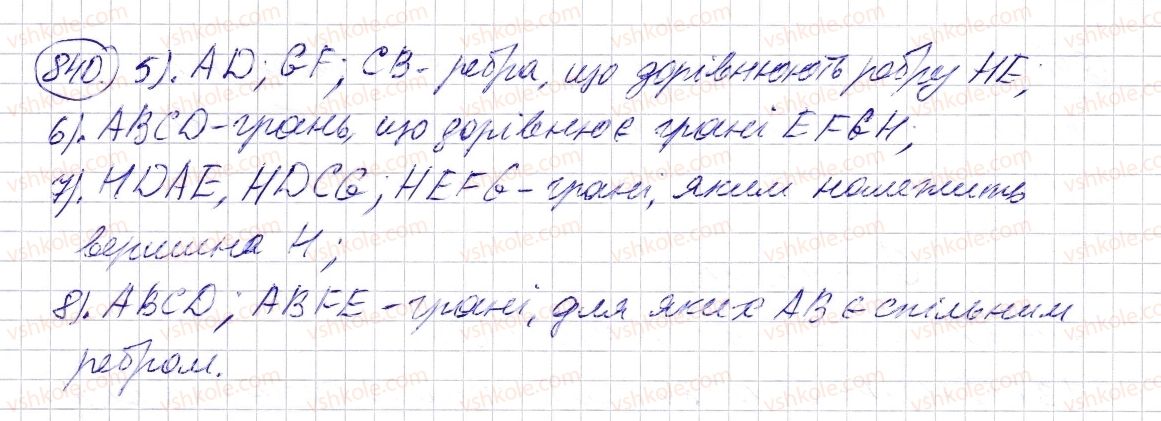 840. 5). AD; GF; CB - ребра, що дорівнюють ребру HE;
6). ABCD - грань, що дорівнює грані EFGH;
7). HDAE, HDCG; HEFG - грані, яким належить
вершина H;
8). ABCD; ABFE - грані, для яких AB є спільним
ребром.